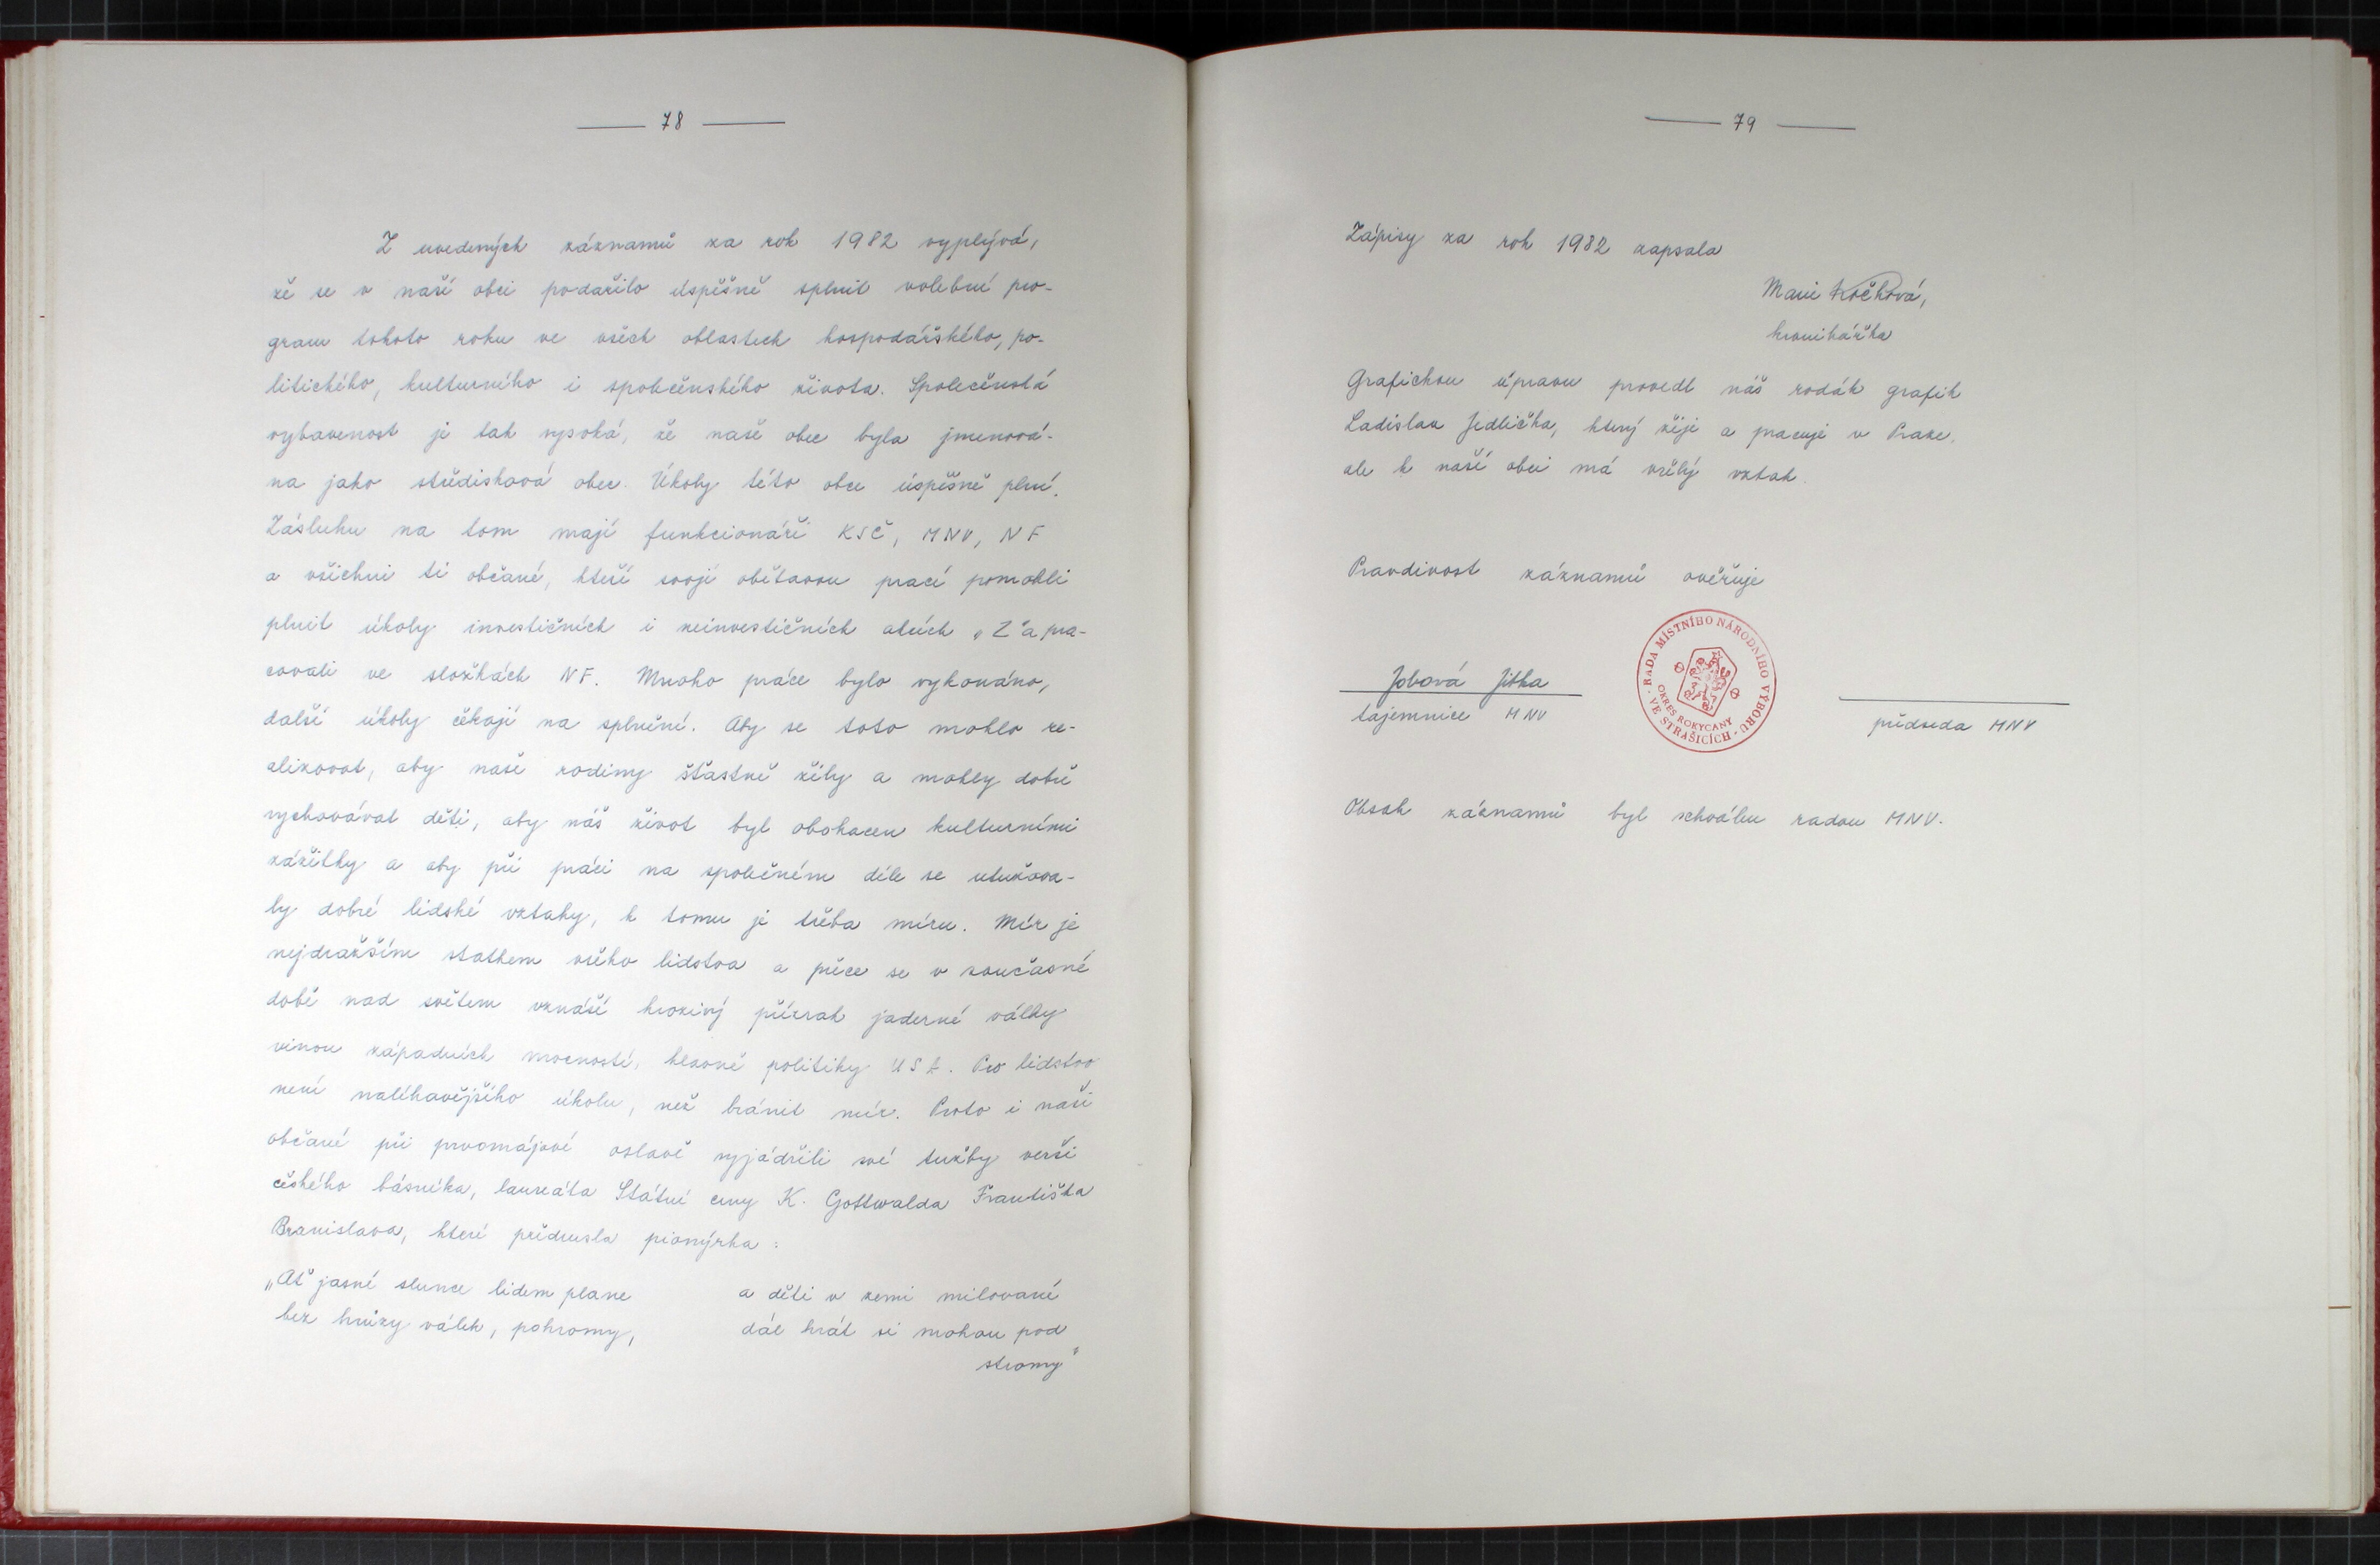 78
Z uvedených záznamů za rok 1982 vyplývá,
že se v naší obci podařilo úspěšně splnit volební pro-
gram tohoto roku ve všech oblastech hospodářského, po-
litického, kulturního i společenského života. Společenská
vybavenost je tak vysoká, že naše obec byla jmenová-
na jako středisková obec. Úkoly této obce úspěšně plní.
Zásluhu na tom mají funkcionáři KSČ, MNV, NF
a všichni ti občané, kteří svojí obětavou prací pomohli
plnit úkoly investičních i neinvestičních akcích „Z“ a pra-
covali ve složkách NF. Mnoho práce bylo vykonáno,
další úkoly čekají na splnění. Aby se toto mohlo re-
alizovat, aby naše rodiny šťastně žily a mohly dobře
vychovávat děti, aby náš život byl obohacen kulturními
zážitky a aby při práci na společném díle se utužova-
ly dobré lidské vztahy, k tomu je třeba míru. Mír je
nejdražším statkem všeho lidstva a přece se v současné
době nad světem vznáší hrozivý přízrak jaderné války
vinou západních mocností, hlavně politiky USA. Pro lidstvo
není naléhavějšího úkolu, než bránit mír. Proto i naši
občané při prvomájové oslavě vyjádřili své tužby verši
českého básníka, laureáta Státní ceny K. Gottwalda Františka
Branislava, které přednesla pionýrka:
„Ať jasné slunce lidem plane
bez hrůzy válek, pohromy,
a děti v zemi milované
dál hrát si mohou pod
stromy“
79
Zápisy za rok 1982 zapsala
Marie Kočková,
kronikářka
Grafickou úpravu provedl náš rodák grafik
Ladislav Jedlička, který žije a pracuje v Praze,
ale k naší obci má vřelý vztah.
Pravdivost záznamů ověřuje
Jobová Jitka
tajemnice MNV
RADA MÍSTNÍHO NÁRODNÍHO VÝBORU
VE STRAŠICÍCH
OKRES ROKYCANY
předseda MNV
Obsah záznamů byl schválen radou MNV.